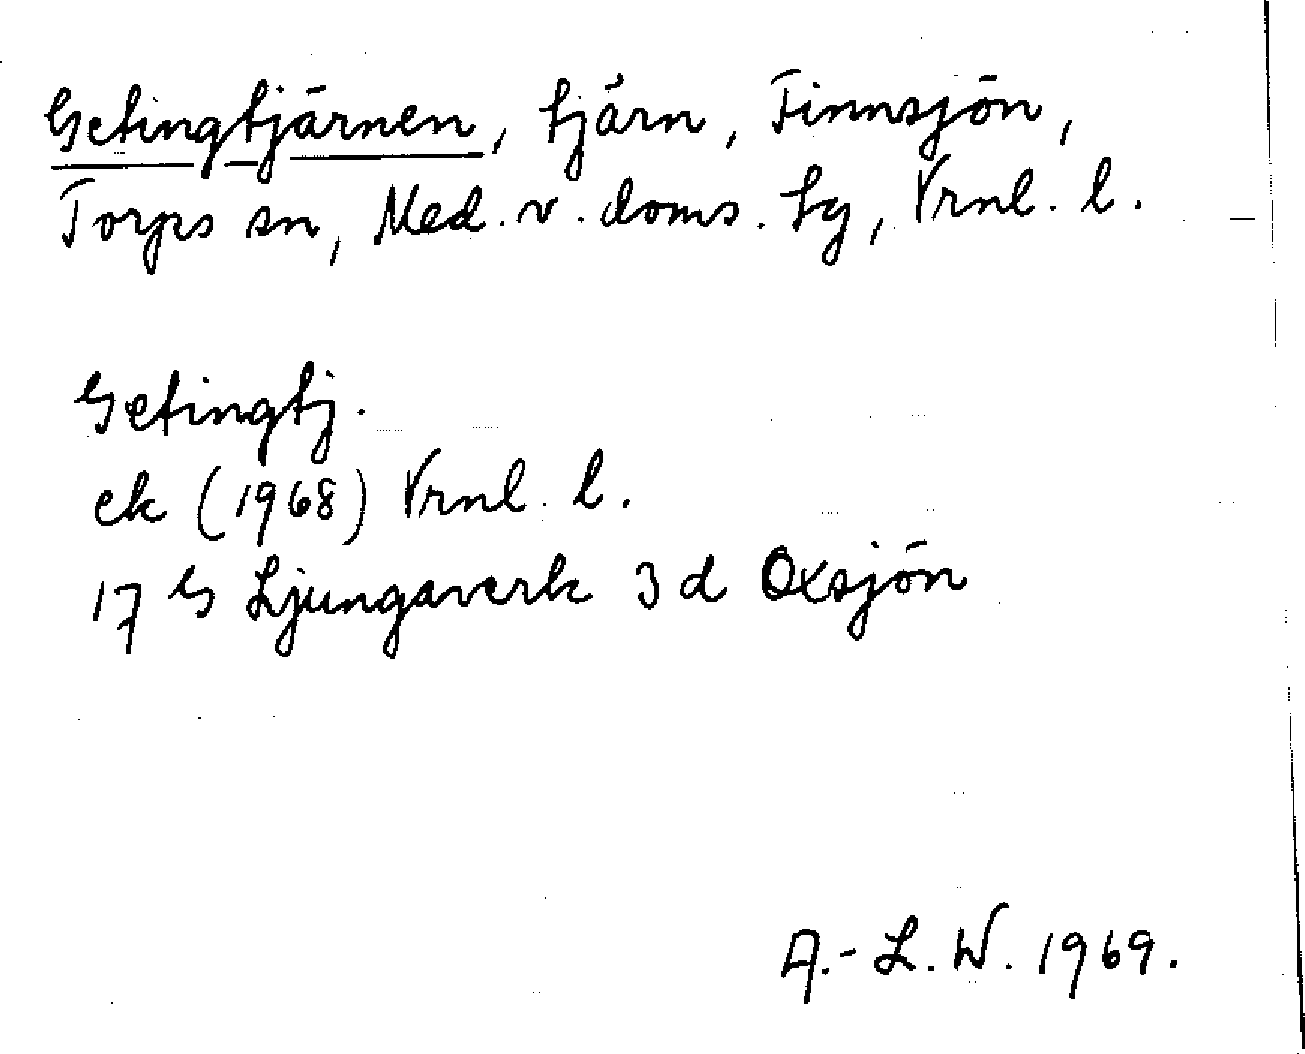 Getingtjärnen, tjärn, Finnsjön,
Torps sn, Med. v. doms. tg, Vrnl. l.
Getingtj.
ek (1968) Vrnl. l.
17 G Ljungaverk 3 d Oxsjön
A.-L. W. 1969.